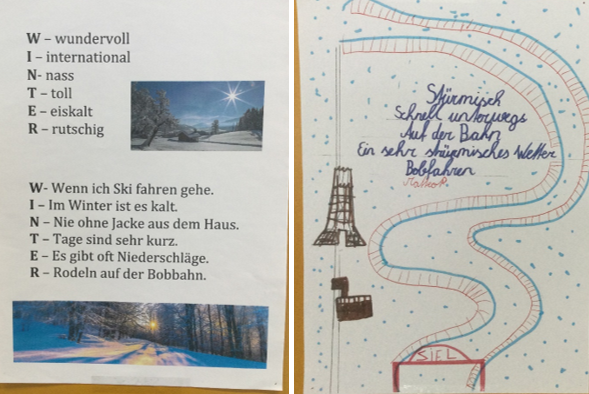 W – wundervoll
I – international
N- nass
T – toll
E – eiskalt
R – rutschig
W- Wenn ich Ski fahren gehe.
I – Im Winter ist es kalt.
N – Nie ohne Jacke aus dem Haus.
T – Tage sind sehr kurz.
E – Es gibt oft Niederschläge.
R – Rodeln auf der Bobbahn.
Stürmisch
Schnell unterwegs
Auf der Bahn
Ein sehr stürmisches Wetter
Bobfahren
SIEL